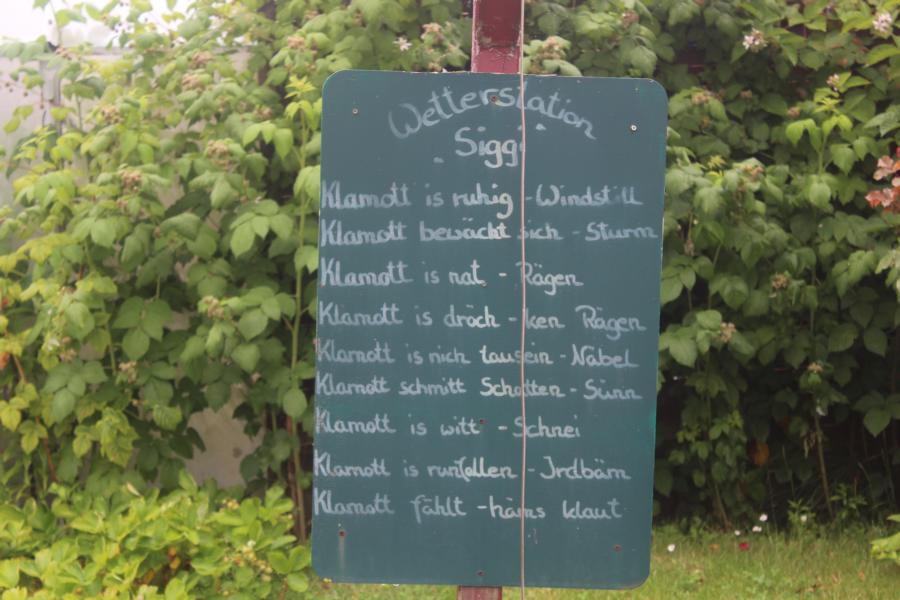 Wetterstation
"Siggi"
Klamott is ruhig - Windstill
Klamott bewächt sich - Sturm
Klamott is nat - Rägen
Klamott is dröch - ken Rägen
Klamott is nich tau sein - Näbel
Klamott schmitt Schatten - Sünn
Klamott is witt - Schnei
Klamott is runfallen - Irdbäm
Klamott fählt - häms klaut